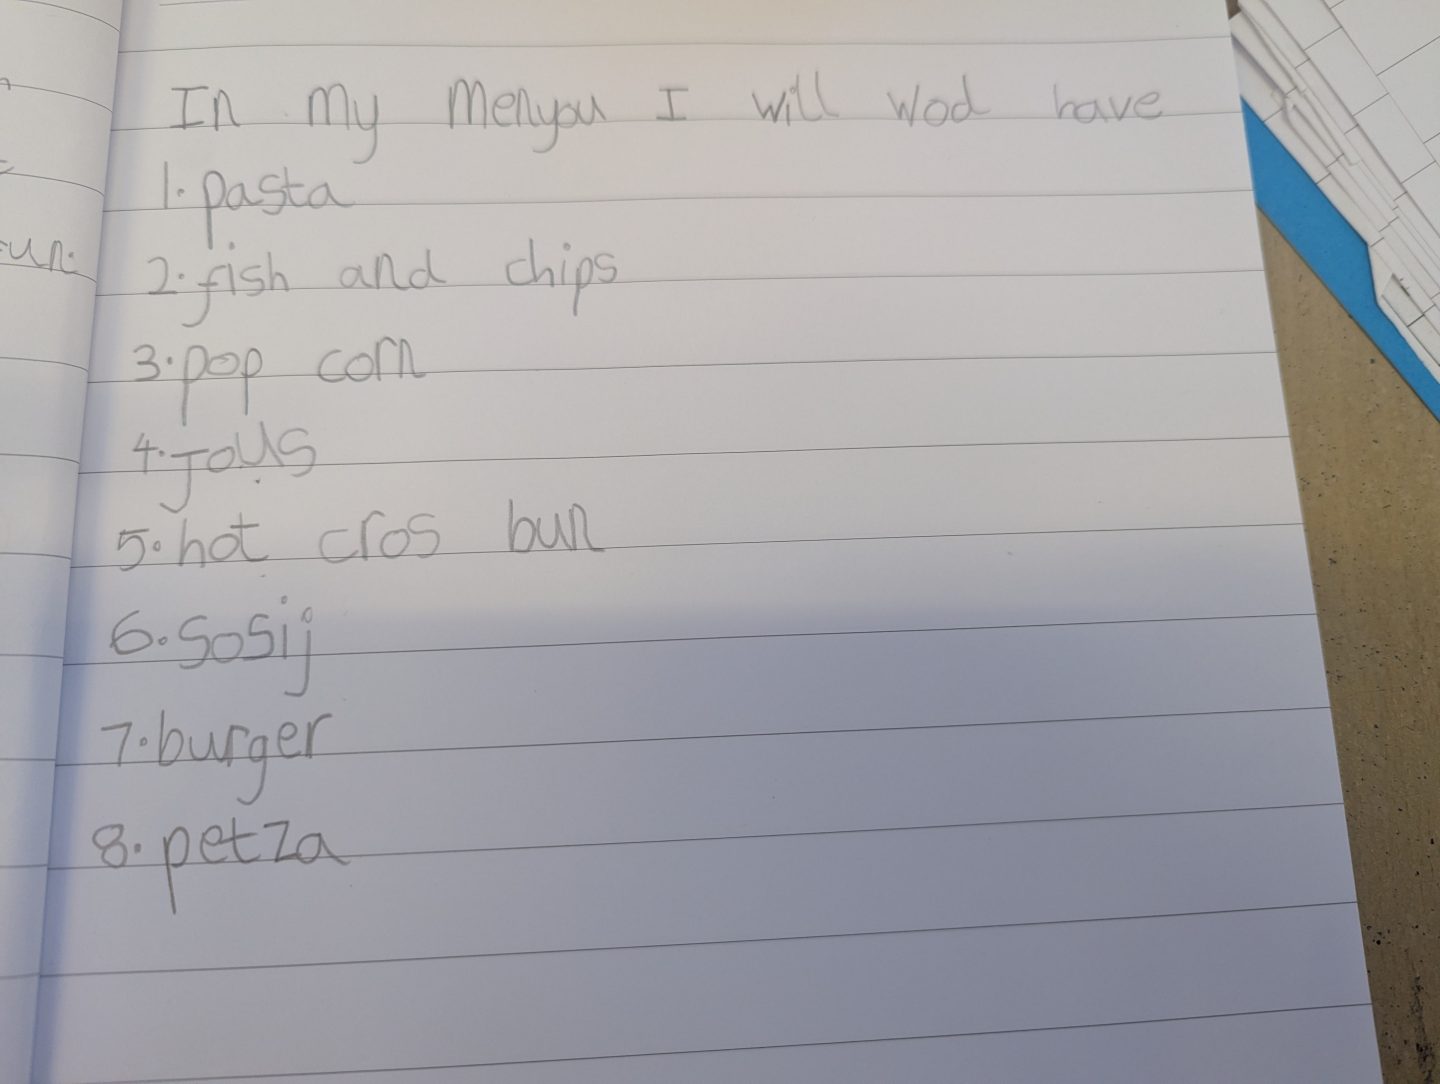 In my Menyou I will Wod have
1. pasta
2. fish and chips
3. pop corn
4. Jous
5. hot cros bun
6. Sosij
7. burger
8. petza